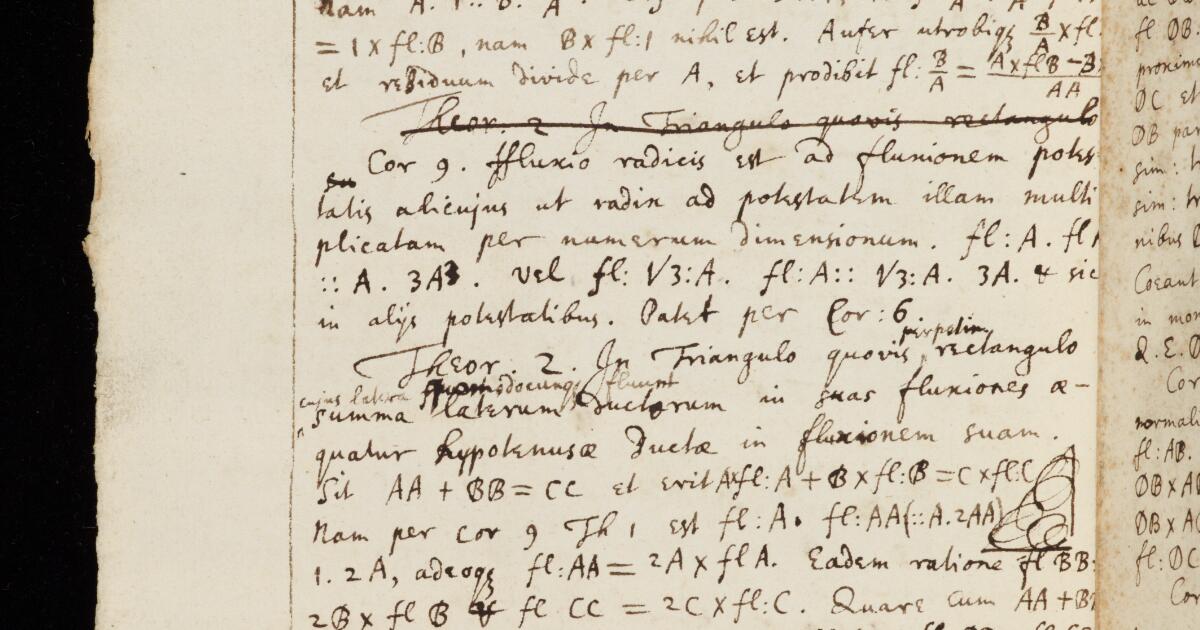 = 1 × fl:B, nam B× fl:1 nihil est. Aufer utrobiqꝫ B/A × fl.
et residuum divide per A, et prodibit fl: B/A = A×flB – B× / AA
Theor. 2 In Triangulo quovis rectangulo
Cor 9. ffluxio radicis est ad fluxionem potes-
tatis alicujus ut radix ad potestatem illam multi
plicatam per numerum dimensionum. fl: A. fl
:: A. 3A3. vel fl: √3:A. fl:A:: √3:A. 3A. & sic
in alijs potestatibus. Patet per Cor: 6.
perpetim
Theor. 2. In Triangulo quovis rectangulo
cujus latera quomodocunqꝫ fluunt
summa laterum ductorum in suas fluxiones æ-
quatur hypotenusæ ductæ in fluxionem suam.
Sit AA + BB = CC et erit A×fl:A + B×fl:B = C×fl:C
Nam per cor 9 Th 1 est fl:A. fl:AA(::A.2AA)
1. 2A, adeoqꝫ fl:AA = 2A× flA. Eadem ratione fl BB:
2B× fl B & fl CC = 2C×fl:C. Quare cum AA + B
fl ØB.
proxime
ØC et
ØB par
sim: t
sim: tr
nibus
Coeant
in mo
Q.E.D
Cor
normali
fl:AB.
ØB×A
ØB×A
fl:ØC
Cor